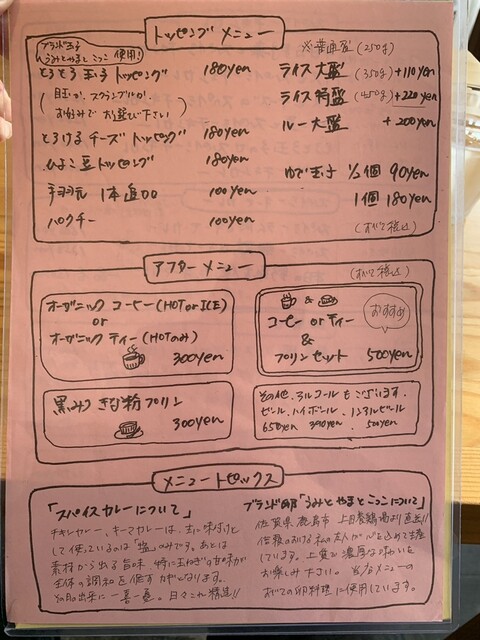 トッピングメニュー
ブランド玉子
うみとやまと ここ 使用！
とろとろ玉子トッピング 180yen
(目玉か、スクランブルか、
お好みでお選び下さい)
とろけるチーズトッピング 180yen
ひよこ豆トッピング 180yen
手羽元 1本追加 100yen
パクチー 100yen
※普通盛(250g)
ライス大盛(350g)+110yen
ライス特盛(450g)+220yen
ルー大盛 +200yen
ゆで玉子 1/2個 90yen
1個 180yen
(すべて税込)
アフターメニュー
(すべて税込)
オーガニック コーヒー(HOT or ICE)
or
オーガニック ティー(HOTのみ)
300yen
黒みつきな粉プリン
300yen
&
コーヒー or ティー
&
プリンセット 500yen
おすすめ
その他、アルコールもございます。
ビール、ハイボール、ノンアルビール
650yen 500yen
メニュートピックス
「スパイスカレーについて」
チキンカレー、キーマカレーは主に味付けと
して使っているのは「塩」のみです。あとは
素材から出る旨味、特に玉ねぎの甘味が
全体の調和を促す力になります。
日々の出来に一喜一憂。日々これ精進!!
ブランド卵「うみとやまと ここについて」
佐賀県鹿島市 養鶏場より直送!!
信頼のおける 主人が心を込めて生産
しています。上質で濃厚な味わいを
お楽しみ下さい。当店メニューの
すべての卵料理に使用しています。